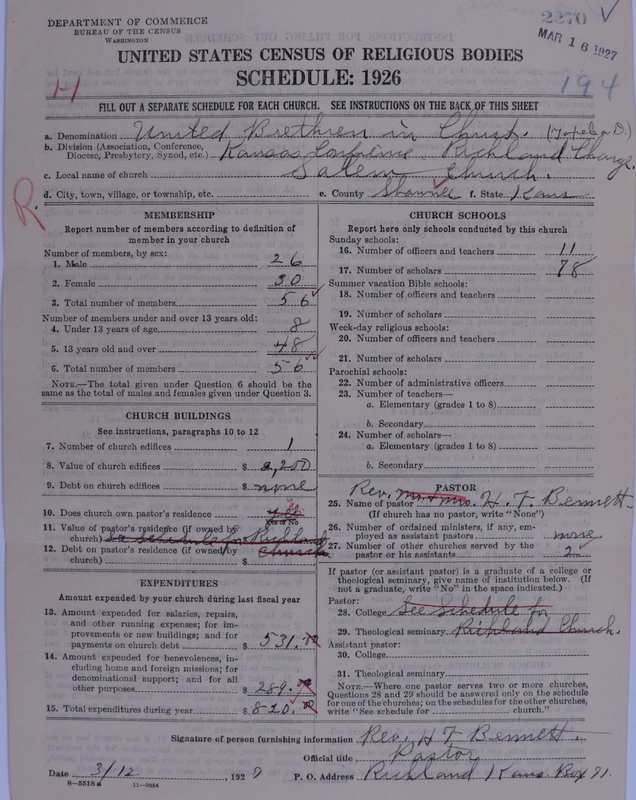 DEPARTMENT OF COMMERCE
BUREAU OF THE CENSUS
WASHINGTON
2270
MAR 16 1927
UNITED STATES CENSUS OF RELIGIOUS BODIES
SCHEDULE: 1926
194
FILL OUT A SEPARATE SCHEDULE FOR EACH CHURCH. SEE INSTRUCTIONS ON THE BACK OF THIS SHEET
a. Denomination United Brethren in Christ. (Topeka D.)
b. Division (Association, Conference, Diocese, Presbytery, Synod, etc.) Kansas Conference Richland Charge.
c. Local name of church Salem Church.
d. City, town, village, or township, etc. e. County Shawnee f. State Kans
R.
MEMBERSHIP
Report number of members according to definition of member in your church
Number of members, by sex:
1. Male 26
2. Female 30
3. Total number of members 56
Number of members under and over 13 years old:
4. Under 13 years of age 8
5. 13 years old and over 48
6. Total number of members 56
NOTE.—The total given under Question 6 should be the same as the total of males and females given under Question 3.
CHURCH BUILDINGS
See instructions, paragraphs 10 to 12
7. Number of church edifices 1
8. Value of church edifices $ 2,200
9. Debt on church edifices $ none
10. Does church own pastor's residence
Yes or No
11. Value of pastor's residence (if owned by church) See Schedule for Richland
12. Debt on pastor's residence (if owned by church) $ Church
EXPENDITURES
Amount expended by your church during last fiscal year
13. Amount expended for salaries, repairs, and other running expenses; for improvements or new buildings; and for payments on church debt $ 531.
14. Amount expended for benevolences, including home and foreign missions; for denominational support; and for all other purposes $ 289.
15. Total expenditures during year $ 820.
CHURCH SCHOOLS
Report here only schools conducted by this church
Sunday schools:
16. Number of officers and teachers 11
17. Number of scholars 78
Summer vacation Bible schools:
18. Number of officers and teachers
19. Number of scholars
Week-day religious schools:
20. Number of officers and teachers
21. Number of scholars
Parochial schools:
22. Number of administrative officers
23. Number of teachers—
a. Elementary (grades 1 to 8)
b. Secondary
24. Number of scholars—
a. Elementary (grades 1 to 8)
b. Secondary
PASTOR
25. Name of pastor Rev. Mr & Mrs. H. F. Bennett
(If church has no pastor, write "None")
26. Number of ordained ministers, if any, employed as assistant pastors none
27. Number of other churches served by the pastor or his assistants 2
If pastor (or assistant pastor) is a graduate of a college or theological seminary, give name of institution below. (If not a graduate, write "No" in the space indicated.)
Pastor:
28. College See Schedule for
29. Theological seminary Richland Church.
Assistant pastor:
30. College
31. Theological seminary
NOTE.—Where one pastor serves two or more churches, Questions 28 and 29 should be answered only on the schedule for one of the churches; on the schedules for the other churches, write "See schedule for ........ church."
Signature of person furnishing information Rev. H F Bennett.
Official title Pastor
Date 3/12, 1927 P. O. Address Richland Kans. Box 71.
8—5518a 11—9084